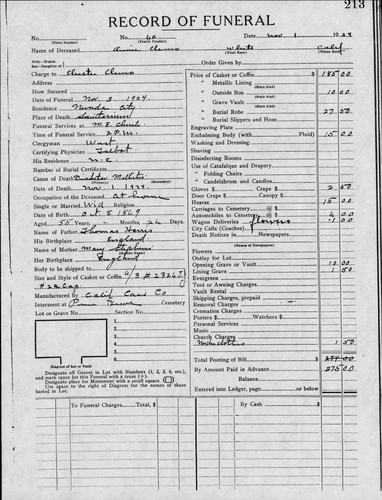 213
RECORD OF FUNERAL
No. No. 40 Date Nov 1 1924
(Total Number) (Yearly Number)
Name of Deceased Annie Clemo White Calif
Wife-Widow
Son-Daughter of Order Given by
Charge to Austin Clemo
Address
How Secured
Date of Funeral Nov. 3 1924.
Residence Nevada City
Place of Death Sanitarium
Funeral Services at M.E. Church.
Time of Funeral Service 2 P.M.
Clergyman West
Certifying Physician Talbot
His Residence N.C.
Number of Burial Certificate
Cause of Death Diabetes Mellitis
Date of Death Nov 1 1924.
Occupation of the Deceased At home
Single or Married. Wid Religion
Date of Birth Oct 5 1869
Aged 55 Years - Months, 26 Days
Name of Father Thomas Harris
His Birthplace England
Name of Mother Mary Stephens
Her Birthplace England
Body to be shipped to
Size and Style of Casket or Coffin 6/3 # 2826 J
Manufactured by Calif Cask Co
Interment at Pine Grove Cemetery
Lot or Grave No. Section No.
1.
2.
3.
4.
5.
6.
Diagram of Lot or Vault
Designate all Graves in Lot with Numbers (1, 2, 3, 4, etc.),
and mark space for this Funeral with a cross (+).
Designate place for Monument with a small square
Use space to the right of Diagram for the names of those
buried in Lot.
Price of Casket or Coffin $ 185 00
" Metallic Lining
(State kind)
" Outside Box 10 00
(State kind)
" Grave Vault
(State kind)
" Burial Robe 27 50
(State kind)
" Burial Slippers and Hose
Engraving Plate
Embalming Body (with Fluid) 15 00
Washing and Dressing
Shaving
Disinfecting Rooms
Use of Catafalque and Drapery
" Folding Chairs
" Candelabrum and Candles
Gloves $ Crape $ 2 50
Door Crape $ Canopy
Hearse 15 00
Carriages to Cemetery @ $
Automobiles to Cemetery @ $ 6 00
Wagon Deliveries Flowers
City Calls (Coaches)
Death Notices in Newspapers
(Names of Newspapers)
Flowers
Outlay for Lot
Opening Grave or Vault
Lining Grave 1 50
Evergreens
Tent or Awning Charges
Vault Rental
Shipping Charges, prepaid
Removal Charges
Cremation Charges
Porters $ Watchers $
Personal Services
Music
Church Charges
1 50
Total Footing of Bill
By Amount Paid in Advance 275 00
Balance
Entered into Ledger, page or below
To Funeral Charges. Total, $ By Cash $